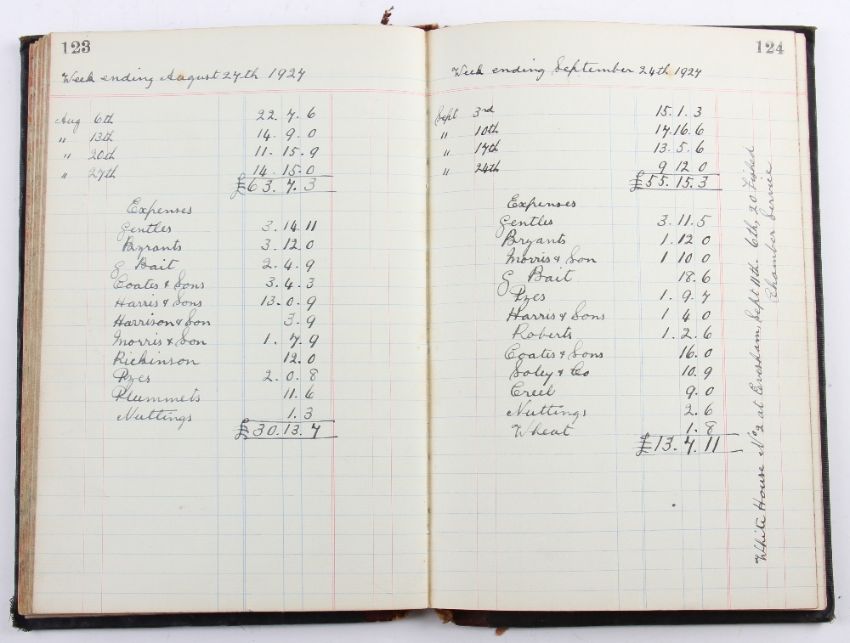 123
Week ending August 27th 1927
Aug 6th 22.7.6
" 13th 14.9.0
" 20th 11.15.9
" 27th 14.15.0
£63.7.3
Expenses
Gentles 3.14.11
Byrants 3.12.0
G Bait 2.4.9
Coates & Sons 3.4.3
Harris & Sons 13.0.9
Harrison & Son 3.9
Morris & Son 1.7.9
Rickinson 12.0
Pzes 2.0.8
Plummets 11.6
Nuttings 1.3
£30.13.7
124
Week ending September 24th 1927
Sept 3rd 15.1.3
" 10th 17.16.6
" 17th 13.5.6
" 24th 9 12 0
£55.15.3
Expenses
Gentles 3.11.5
Bryants 1.12 0
Morris & Son 1 10 0
G Bait 18.6
Pzes 1.9.7
Harris & Sons 1 4 0
Roberts 1.2.6
Coates & Sons 16.0
Soley & Co 10.9
Creel 9.0
Nuttings 2.6
Wheat 1.8
£13.7.11
White House No 2 at Evesham Sept 11th. 6th, 20 Fished
Chamber Service